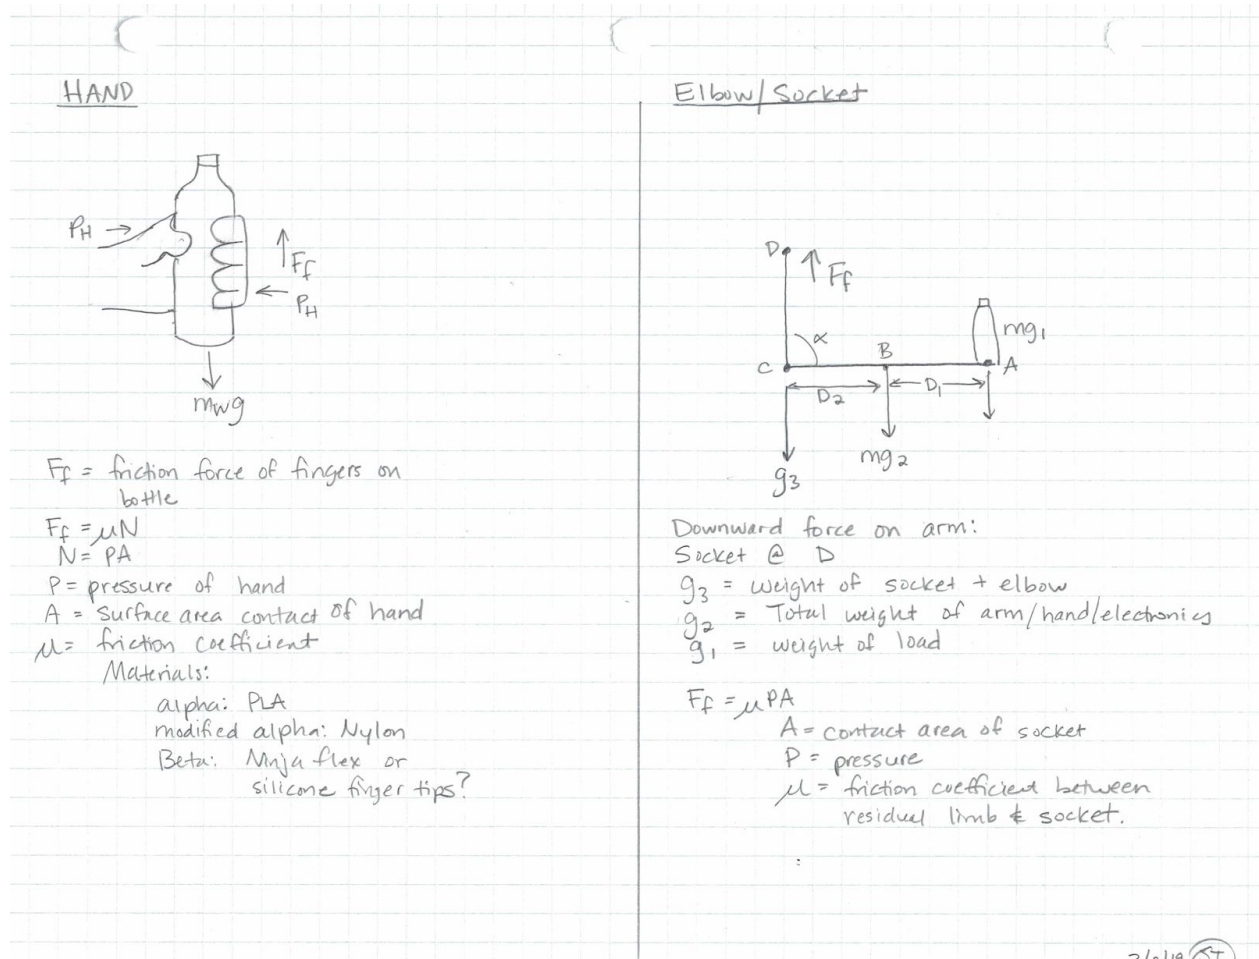 HAND
PH →
↑ Ff
← PH
mwg
Ff = friction force of fingers on
bottle
Ff = μN
N = PA
P = pressure of hand
A = Surface area contact of hand
μ = friction coefficient
Materials:
alpha: PLA
modified alpha: Nylon
Beta: Ninja flex or
silicone finger tips?
Elbow/Socket
D
↑ Ff
mg1
α
B
C
A
D2
D1
mg2
g3
Downward force on arm:
Socket @ D
g3 = weight of socket + elbow
g2 = Total weight of arm/hand/electronics
g1 = weight of load
Ff = μPA
A = contact area of socket
P = pressure
μ = friction coefficient between
residual limb & socket.